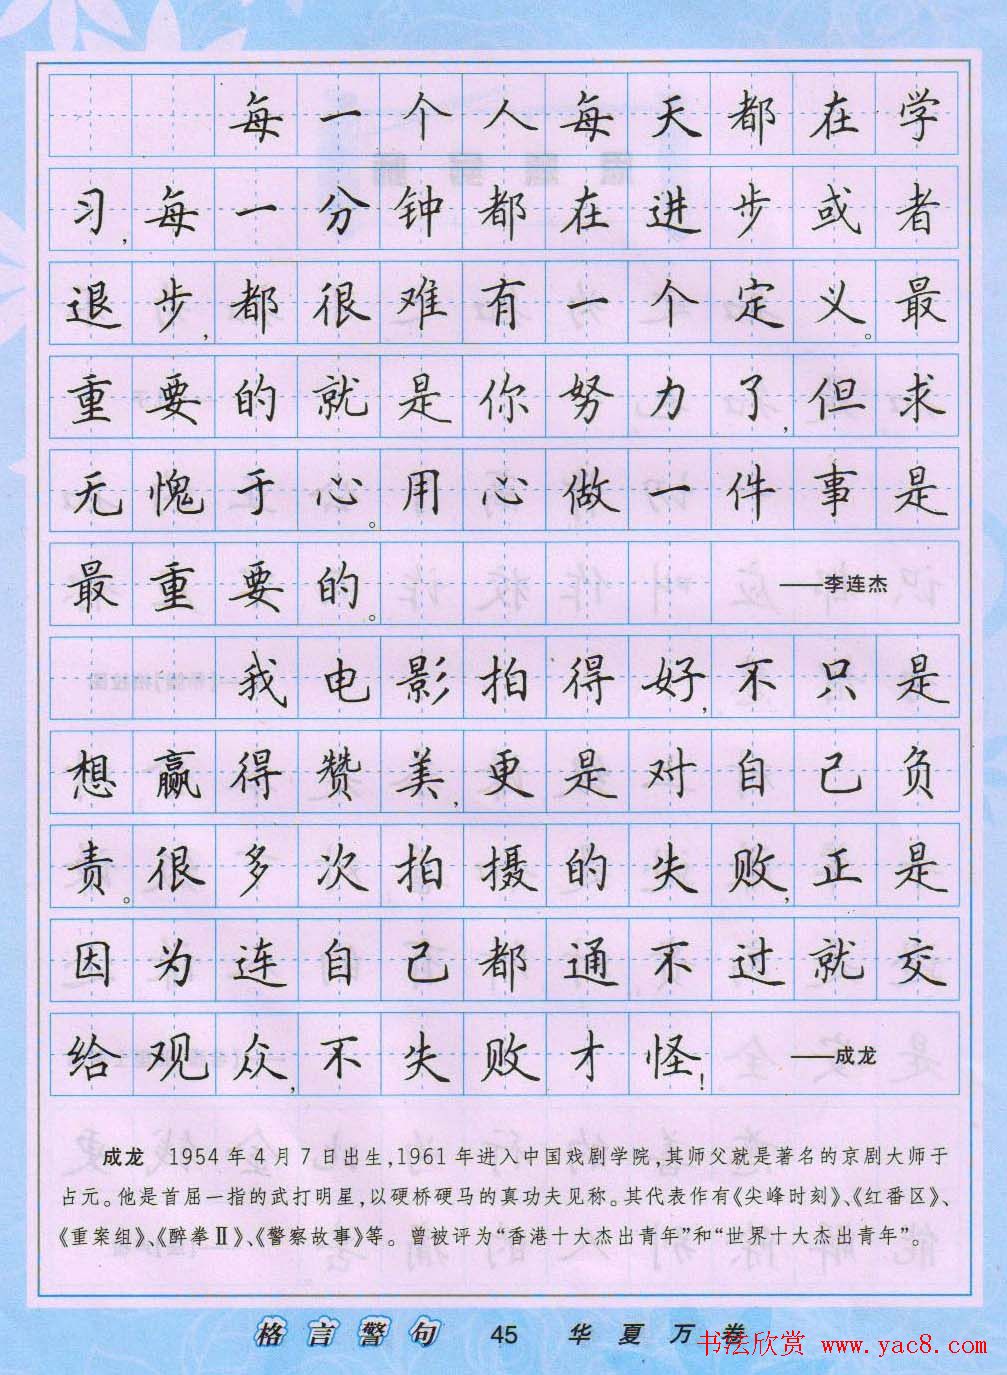 每一个人每天都在学
习,每一分钟都在进步或者
退步,都很难有一个定义。最
重要的就是你努力了,但求
无愧于心。用心做一件事是
最重要的。 ——李连杰
我电影拍得好,不只是
想赢得赞美,更是对自己负
责。很多次拍摄的失败,正是
因为连自己都通不过就交
给观众,不失败才怪! ——成龙
成龙 1954年4月7日出生,1961年进入中国戏剧学院,其师父就是著名的京剧大师于
占元。他是首屈一指的武打明星,以硬桥硬马的真功夫见称。其代表作有《尖峰时刻》、《红番区》、
《重案组》、《醉拳Ⅱ》、《警察故事》等。曾被评为“香港十大杰出青年”和“世界十大杰出青年”。
格言警句 45 华夏万卷
书法欣赏 www.yac8.com